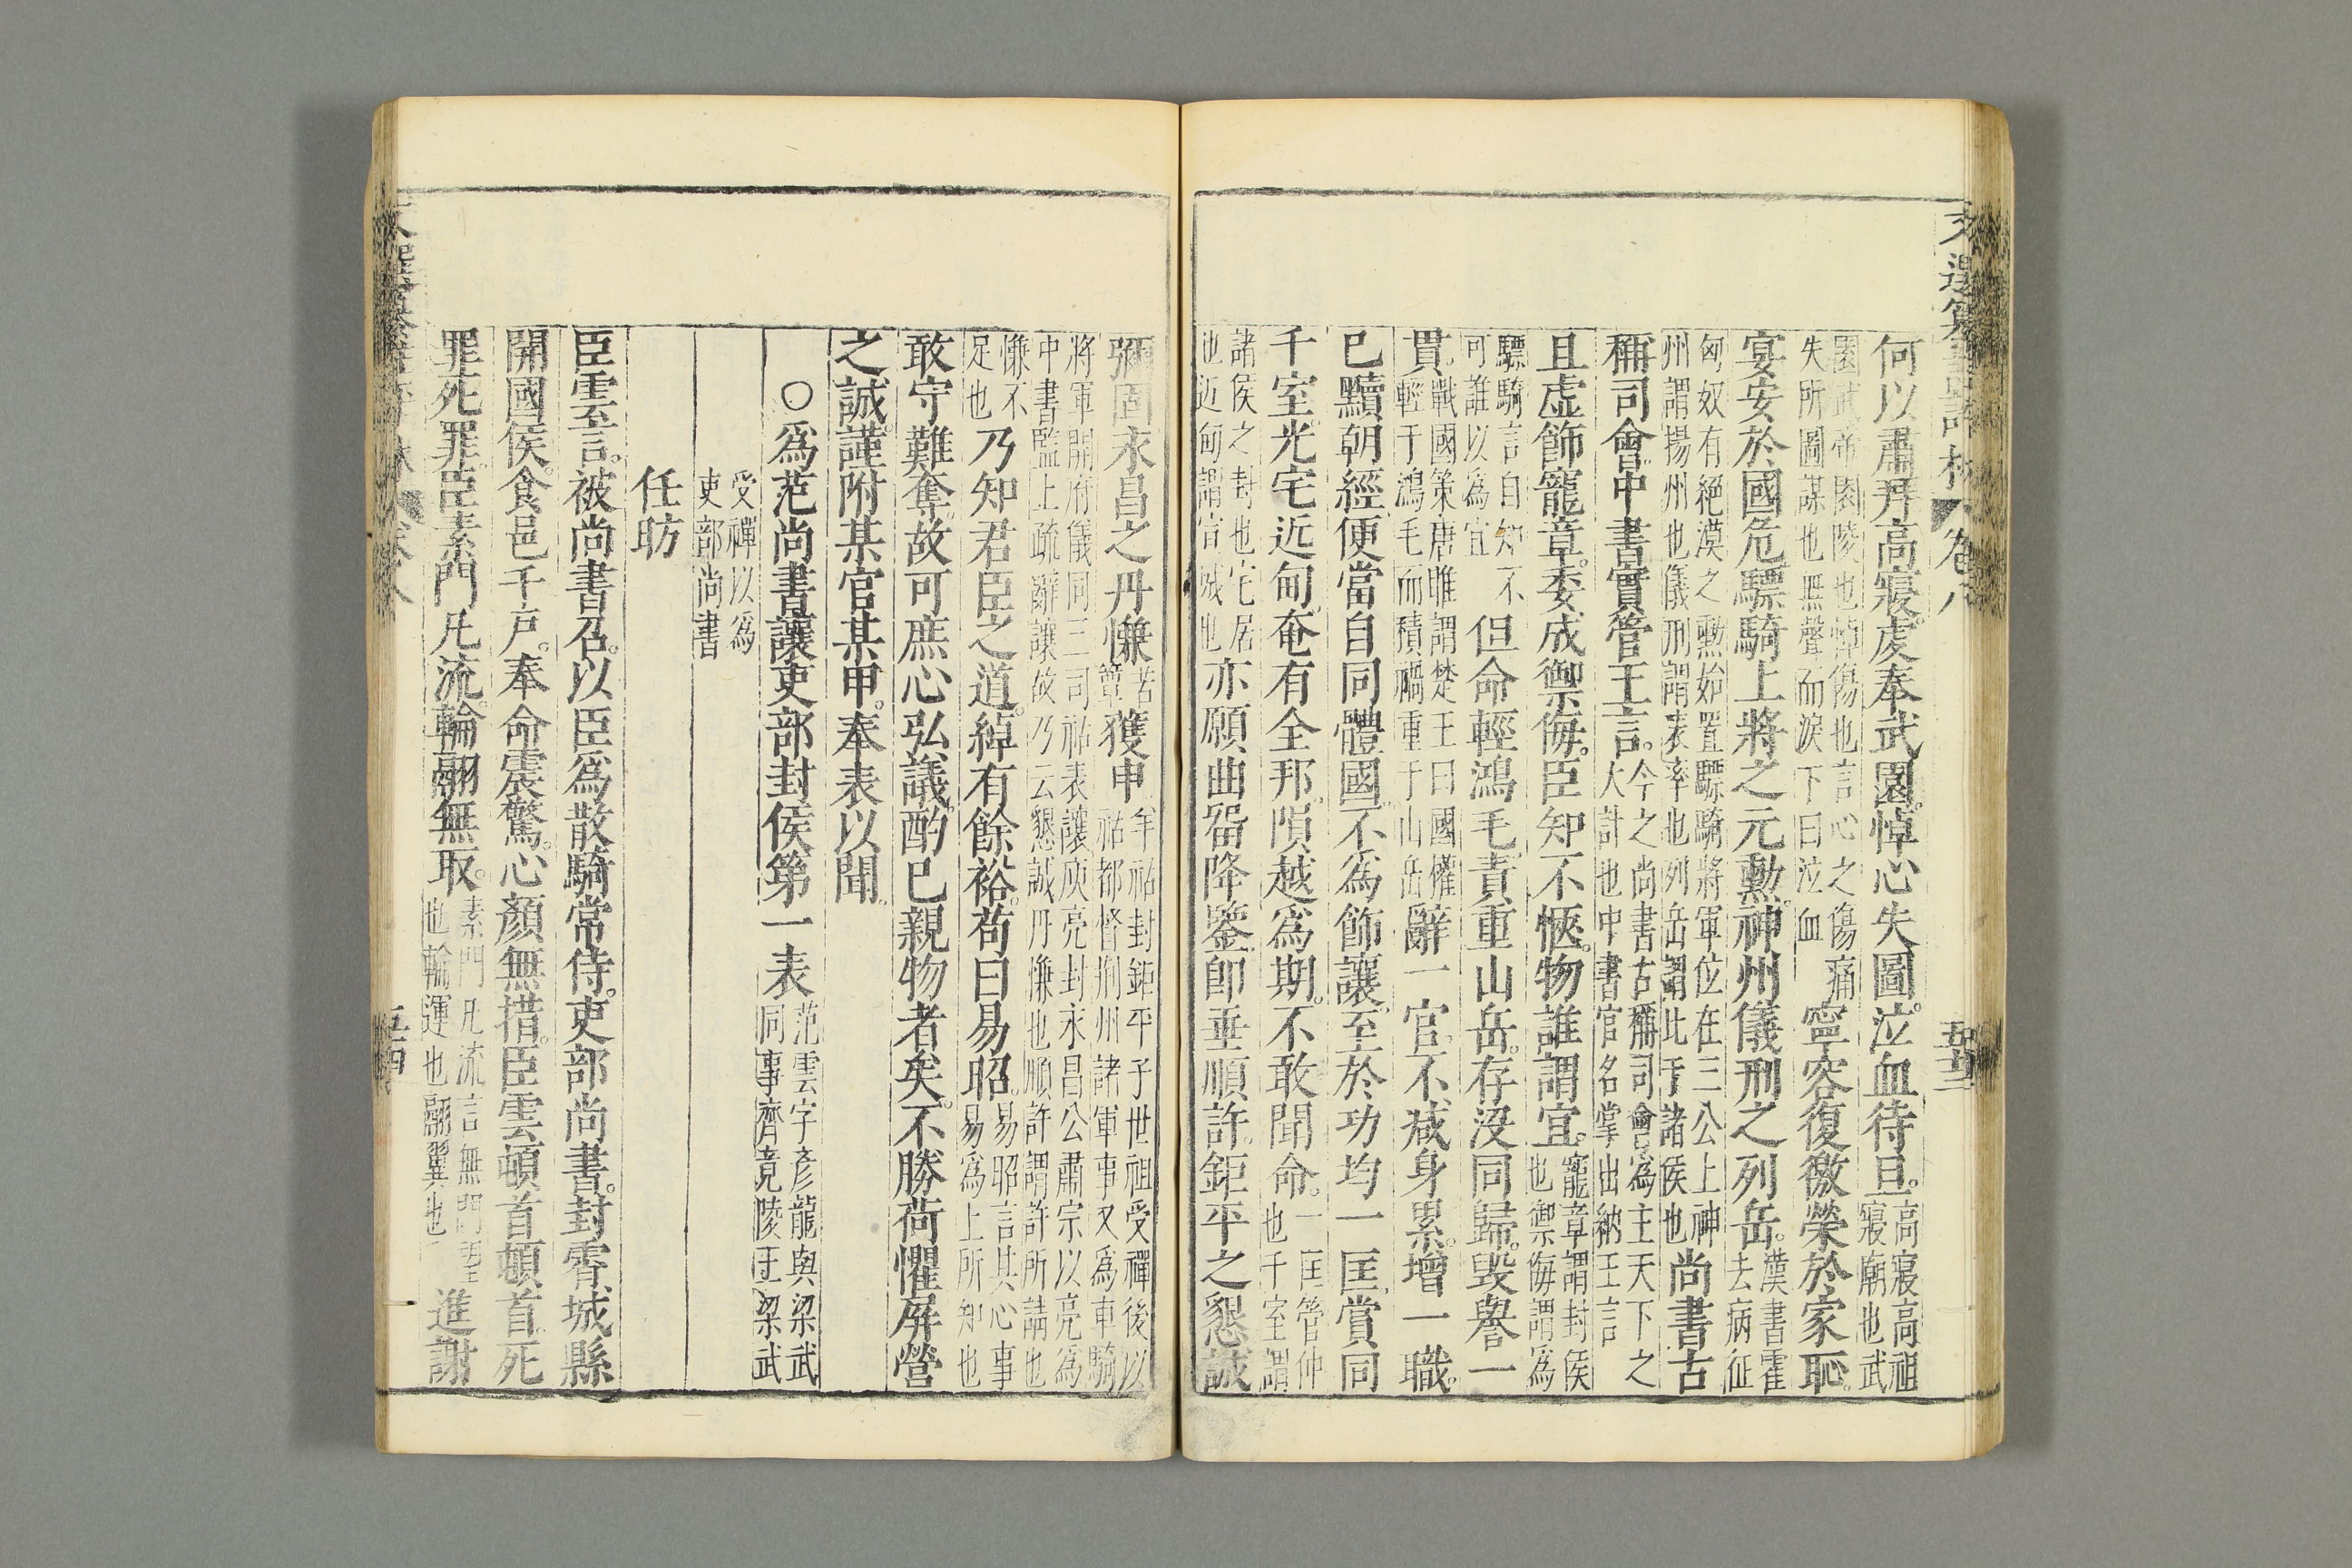 文選纂註評林 卷八 五十三
何以肅拜高寢。虔奉武園。悼心失圖。泣血待旦。高寢高祖寢廟也武
園武帝園陵也悼傷也言心之傷痛失所圖謀也無聲而淚下曰泣血寧容復徼榮於家恥。
宴安於國危驃騎上將之元勲。神州儀刑之列岳。漢書霍去病征
匈奴有絕漠之勲始置驃騎將軍位在三公上神州謂揚州也儀刑謂表率也列岳謂此于諸侯也尚書古
稱司會。中書實管王言。今之尚書古稱司會爲主天下之大計也中書官名掌出納王言
且虛飾寵章。委成禦侮。臣知不愜。物誰謂宜。寵章謂封侯也禦侮謂爲
驃騎言自知不可誰以爲宜但命輕鴻毛責重山岳。存沒同歸。毀譽一
貫。戰國策唐雎謂楚王曰國權輕于鴻毛而積禍重于山岳辭一官。不減身累。增一職。
已黷朝經。便當自同體國。不爲飾讓。至於功均一匡。賞同
千室。光宅近甸。奄有全邦。隕越爲期。不敢聞命。一匡管仲也千室謂
諸侯之封也宅居也近甸謂宣城也亦願曲留降鑒。卽垂順許。鉅平之懇誠
彌固永昌之丹慊苦簟獲申羊祜封鉅平子世祖受禪後以祜都督荆州諸軍事又爲車騎
將軍開府儀同三司祜表讓庾亮封永昌公肅宗以亮爲中書監上疏辭讓故乃云懇誠丹慊也順許謂許所請也
慊不足也乃知君臣之道。綽有餘裕。苟曰易昭。易昭言其心事易爲上所知也
敢守難奪。故可庶心弘議。酌已親物者矣。不勝荷懼屏營
之誠。謹附某官某甲。奉表以聞。
○爲范尚書讓吏部封侯第一表范雲字彥龍與梁武同事齊竟陵王梁武
受禪以爲吏部尚書
任昉
臣雲言。被尚書召。以臣爲散騎常侍。吏部尚書。封霄城縣
開國侯。食邑千戶。奉命震驚。心顏無措。臣雲頓首頓首。死
罪死罪。臣素門凡流。輪翮無取。素門凡流言無門望也輪運也翮翼也進謝
卷八 五十四